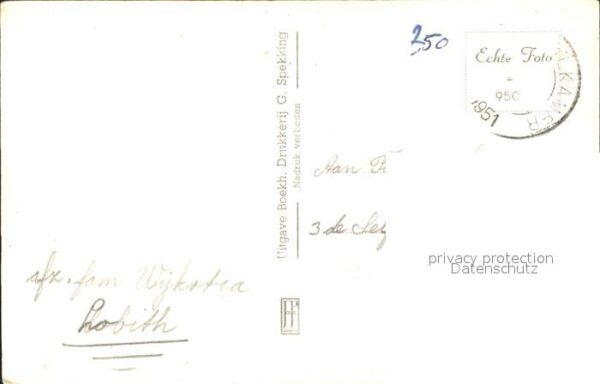 250
Echte Foto
=
950
1951
Uitgave Boekh. Drukkerij G. Spekking
Nadruk verboden
Aan F
3 de
privacy protection
Datenschutz
afz. fam Wijkstra
Lobith